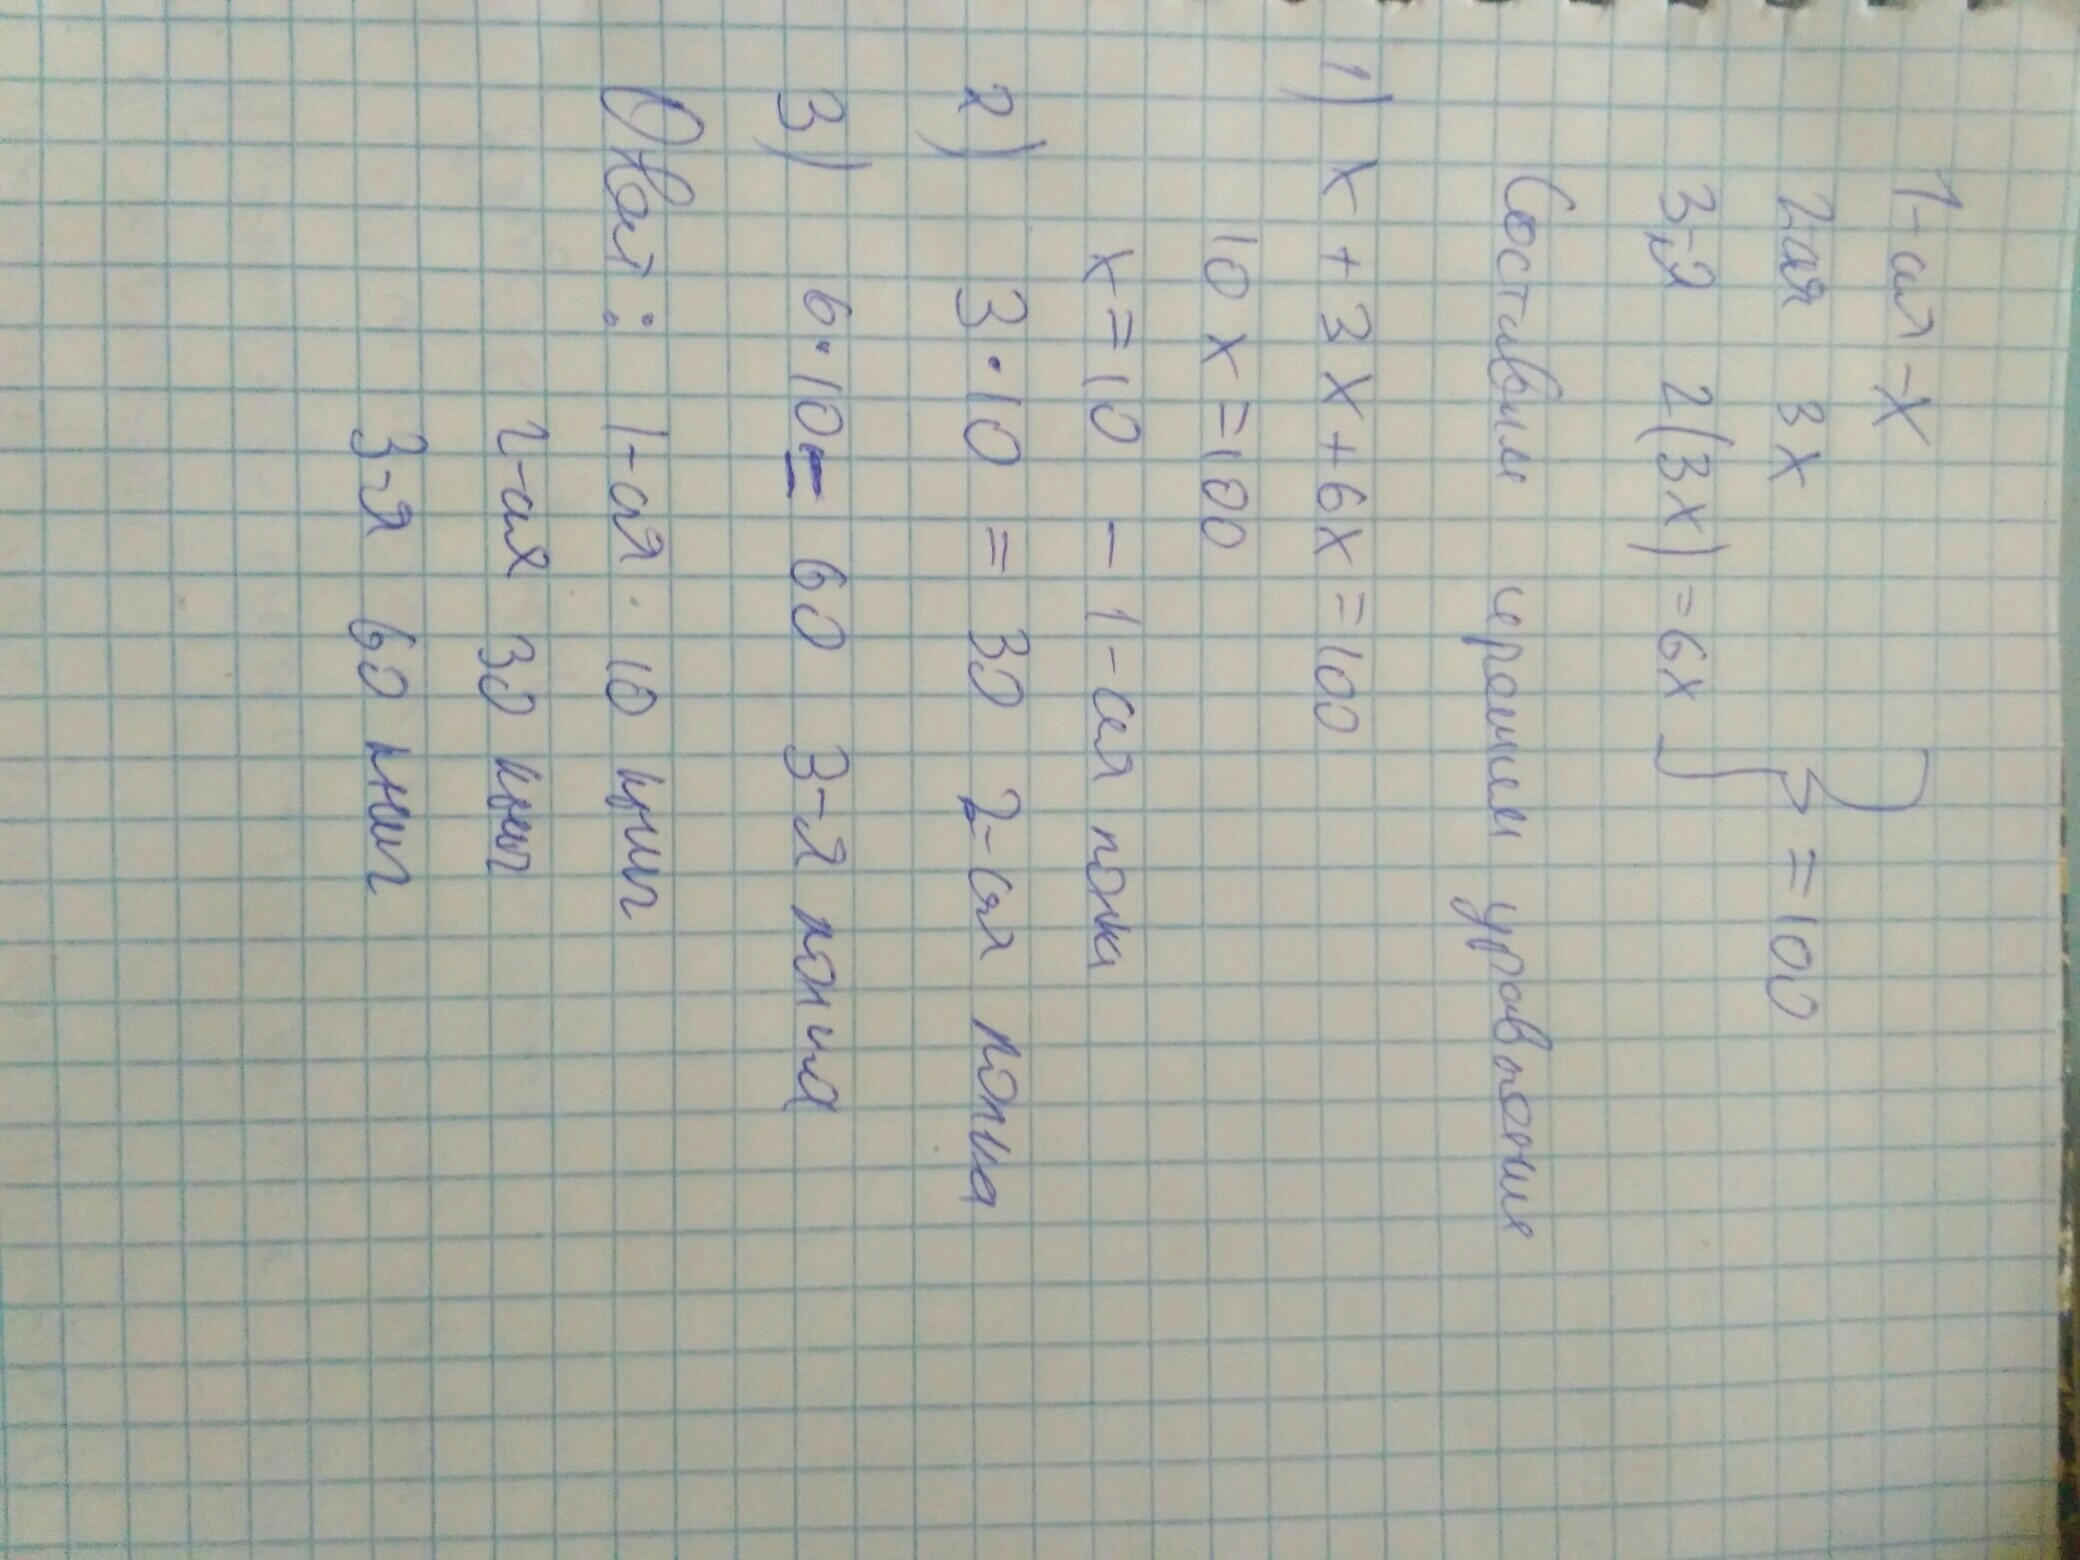 1-ая -х
2ая 3х
3-я 2(3х) = 6х } = 100
Составим и решим уравнение
1) х + 3х + 6х = 100
10х = 100
х = 10 - 1-ая полка
2) 3·10 = 30 2-ая полка
3) 6·10 = 60 3-я полка
Ответ: 1-ая 10 книг
2-ая 30 книг
3-я 60 книг